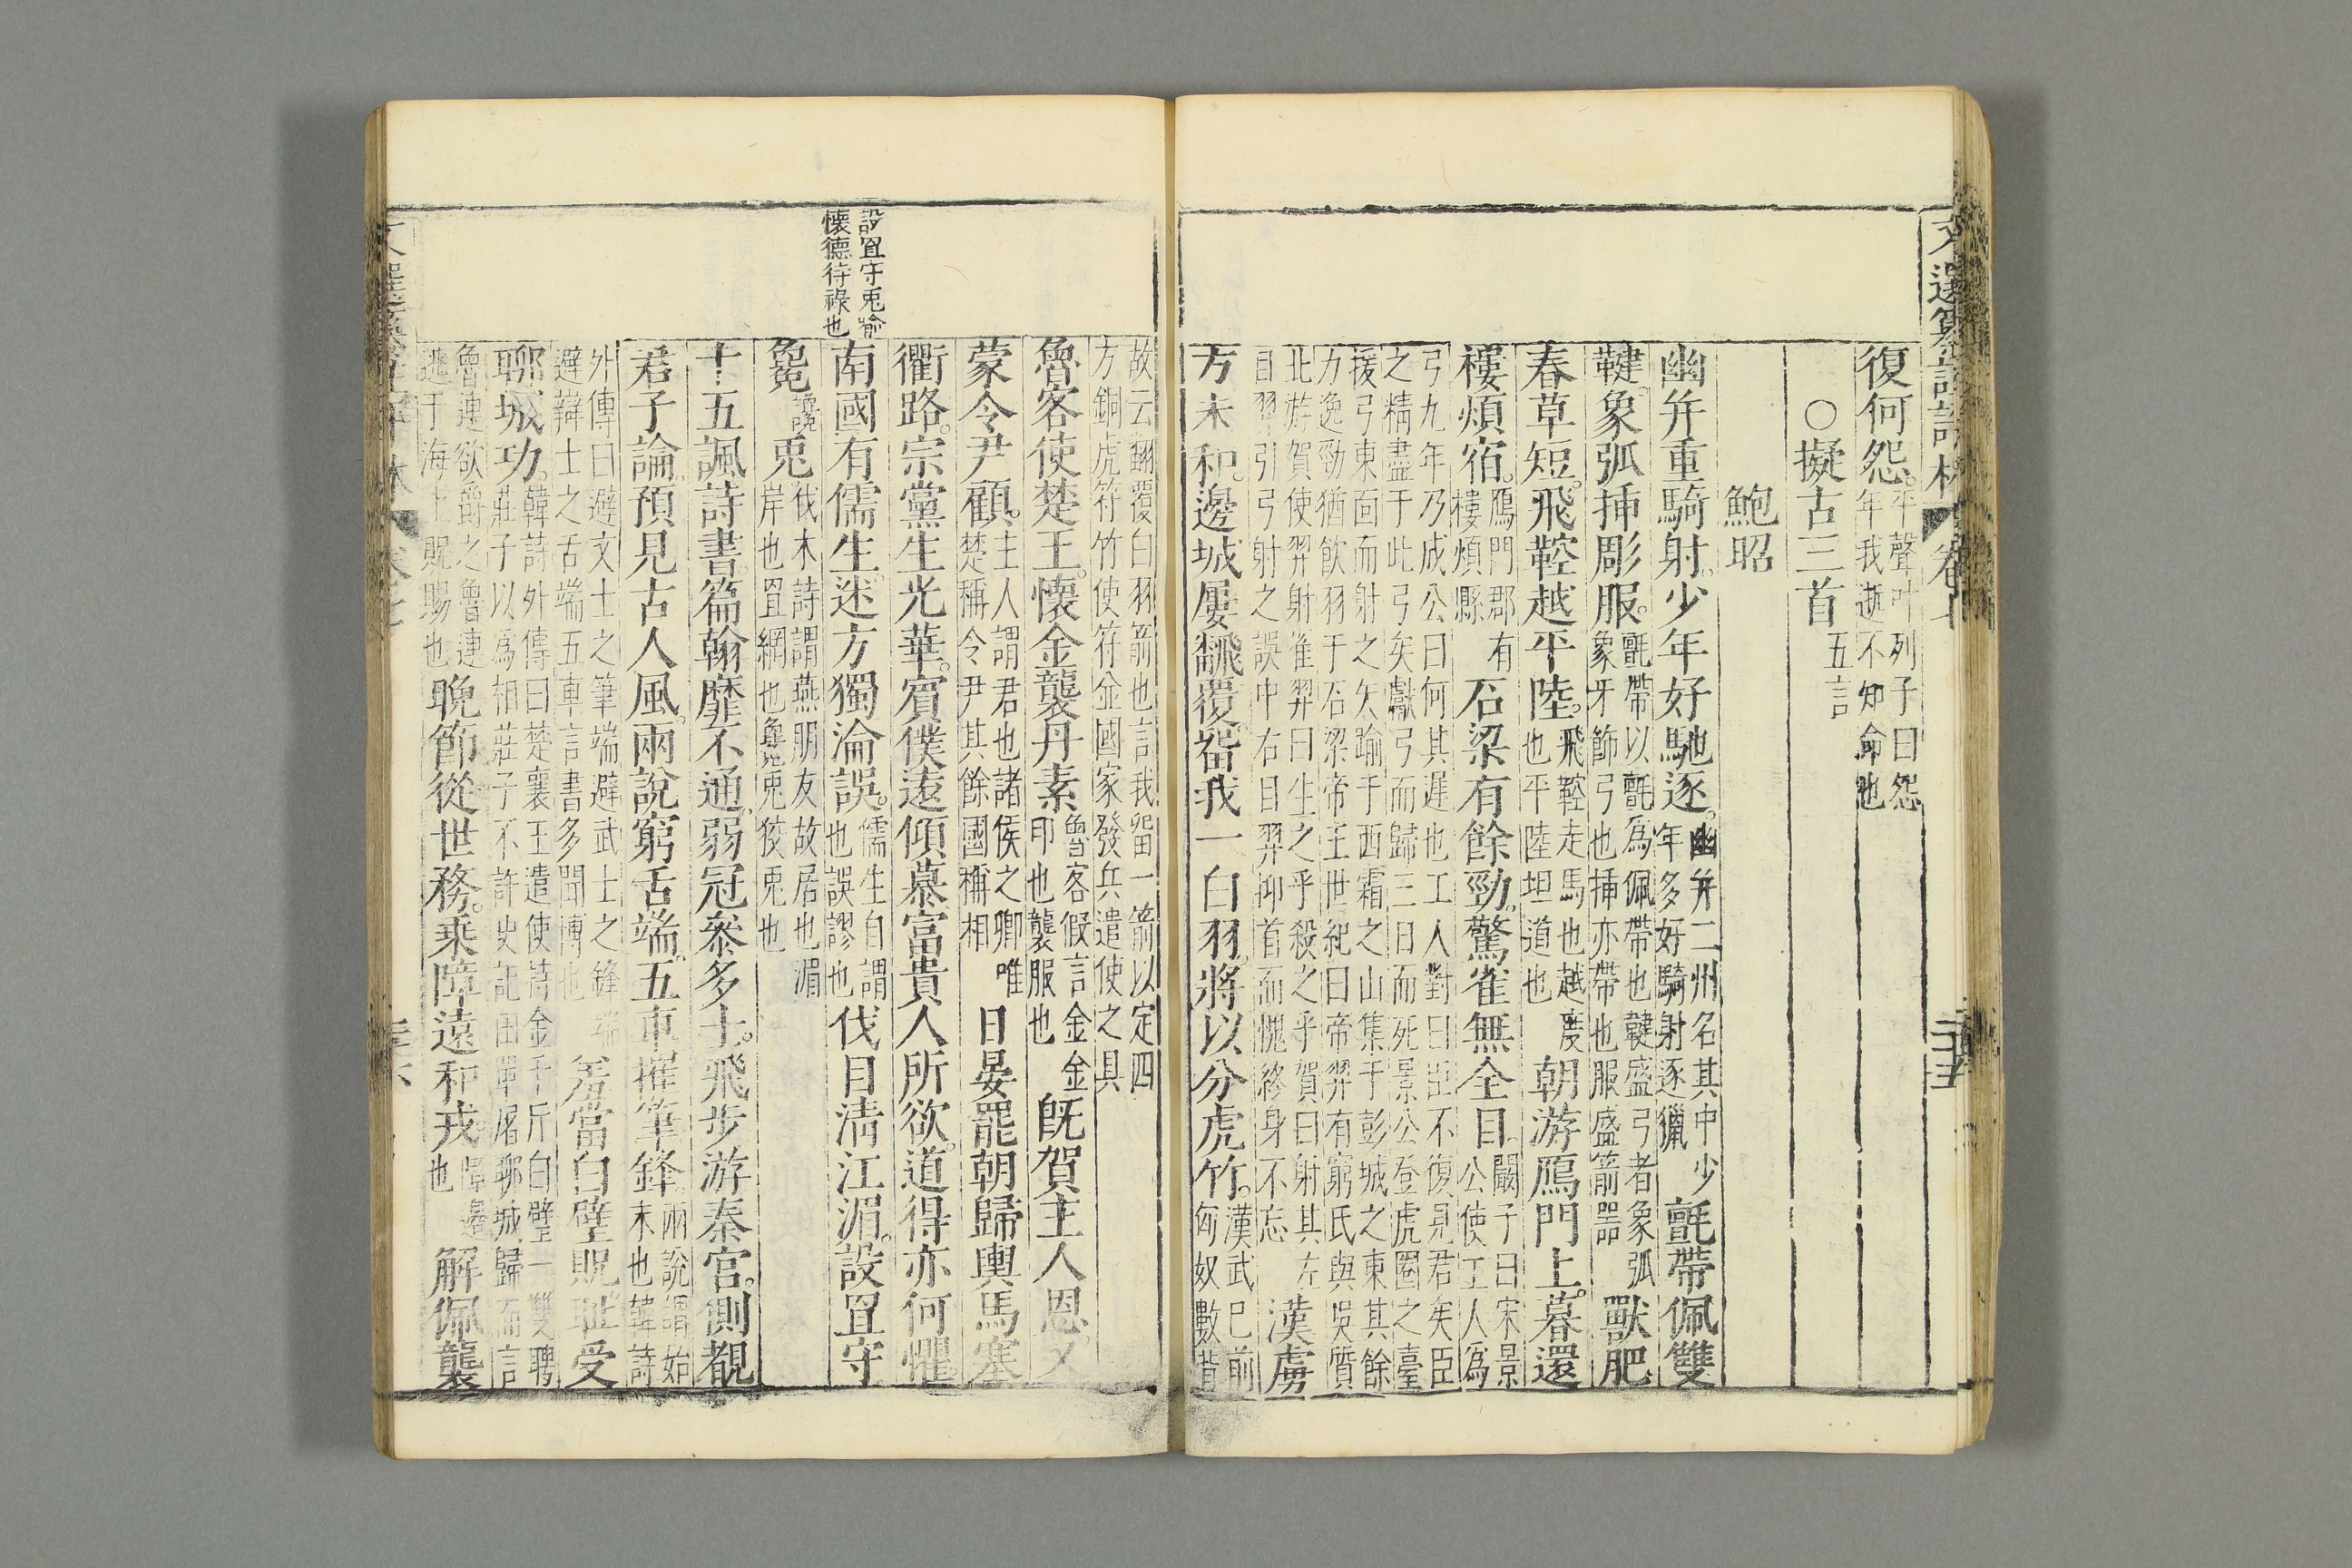 文選纂註評林 卷七
復何怨。平聲叶列子曰怨年我逝不知命也
○擬古三首五言
鮑昭
幽并重騎射。少年好馳逐。幽并二州名其中少年多好騎射逐獵氈帶佩雙
鞬。象弧挿彫服。氈帶以氈爲佩帶帶也鞬盛弓者象弧象牙飾弓也挿亦帶也服盛箭器獸肥
春草短。飛鞚越平陸。飛鞚走馬也越度也平陸坦道也朝游鴈門上。暮還
樓煩宿。鴈門郡有樓煩縣石梁有餘勁。驚雀無全目。闞子曰宋景公使工人爲
弓九年乃成公曰何其遲也工人對曰臣不復見君矣臣之精盡于此弓矣獻弓而歸三日而死景公登虎圈之臺
援弓東面而射之矢踰于西霜之山集于彭城之東其餘力逸勁猶飲羽于石梁帝王世紀曰帝羿有窮氏與吳賀
北游賀使羿射雀羿曰生之乎殺之乎賀曰射其左目羿引弓射之誤中右目羿抑首而愧終身不忘漢虜
方未和。邊城屢翻覆。留我一白羽。將以分虎竹。漢武巳前匈奴數背
故云翻覆白羽箭也言我留一箭以定四方銅虎符竹使符並國家發兵遣使之具
魯客使楚王。懷金襲丹素魯客假言金金印也襲服也旣賀主人恩。又
蒙令尹顧。主人謂君也諸侯之卿唯楚稱令尹其餘國稱相日晏罷朝歸輿馬塞
衢路。宗黨生光華。賓僕遠傾慕富貴人所欲。道得亦何懼
南國有儒生。迷方獨淪誤。儒生自謂也誤謬也伐目淸江湄。設罝守
毚讒兎伐木詩謂燕朋友故居也湄岸也罝網也毚兎狡兎也
十五諷詩書。篇翰靡不通。弱冠叅多士。飛步游秦宫。側覩
君子論。預見古人風。兩說窮舌端。五車摧筆鋒。兩說謂始末也韓詩
外傳曰避文士之筆端避武士之鋒端避辯士之舌端五車言書多聞博也羞當白璧貺。耻受
聊城功。韓詩外傳曰楚襄王遣使持金千斤白璧一雙聘莊子以爲相莊子不許史記田單屠聊城歸而言
魯連欲爵之魯連逃于海上貺賜也晚節從世務。乘障遠和戎。障邊也解佩襲
設罝守兎喻
懷德待祿也